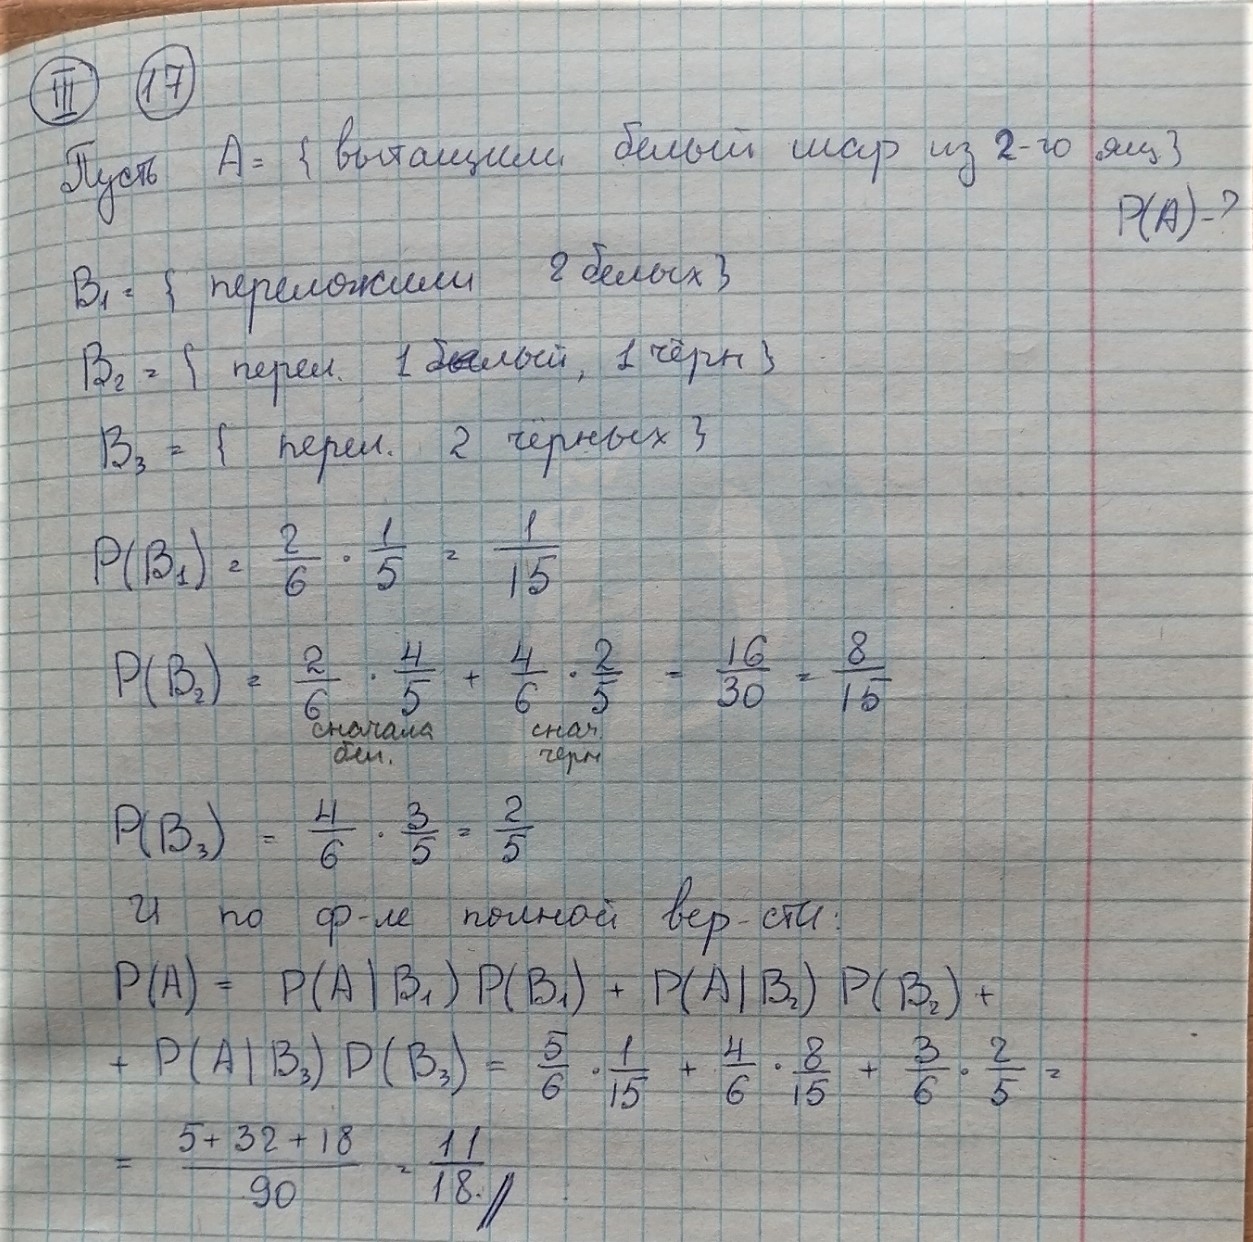 III 17
Пусть A = { вытащили белый шар из 2-го ящ}
P(A) - ?
B₁ = { переложили 2 белых }
B₂ = { перел. 1 белый, 1 чёрн }
B₃ = { перел. 2 чёрных }
P(B₁) = 2/6 · 1/5 = 1/15
P(B₂) = 2/6 · 4/5 + 4/6 · 2/5 = 16/30 = 8/15
сначала бел. снач. черн
P(B₃) = 4/6 · 3/5 = 2/5
И по ф-ле полной вер-сти:
P(A) = P(A|B₁) P(B₁) + P(A|B₂) P(B₂) +
+ P(A|B₃) P(B₃) = 5/6 · 1/15 + 4/6 · 8/15 + 3/6 · 2/5 =
= (5+32+18)/90 = 11/18. //